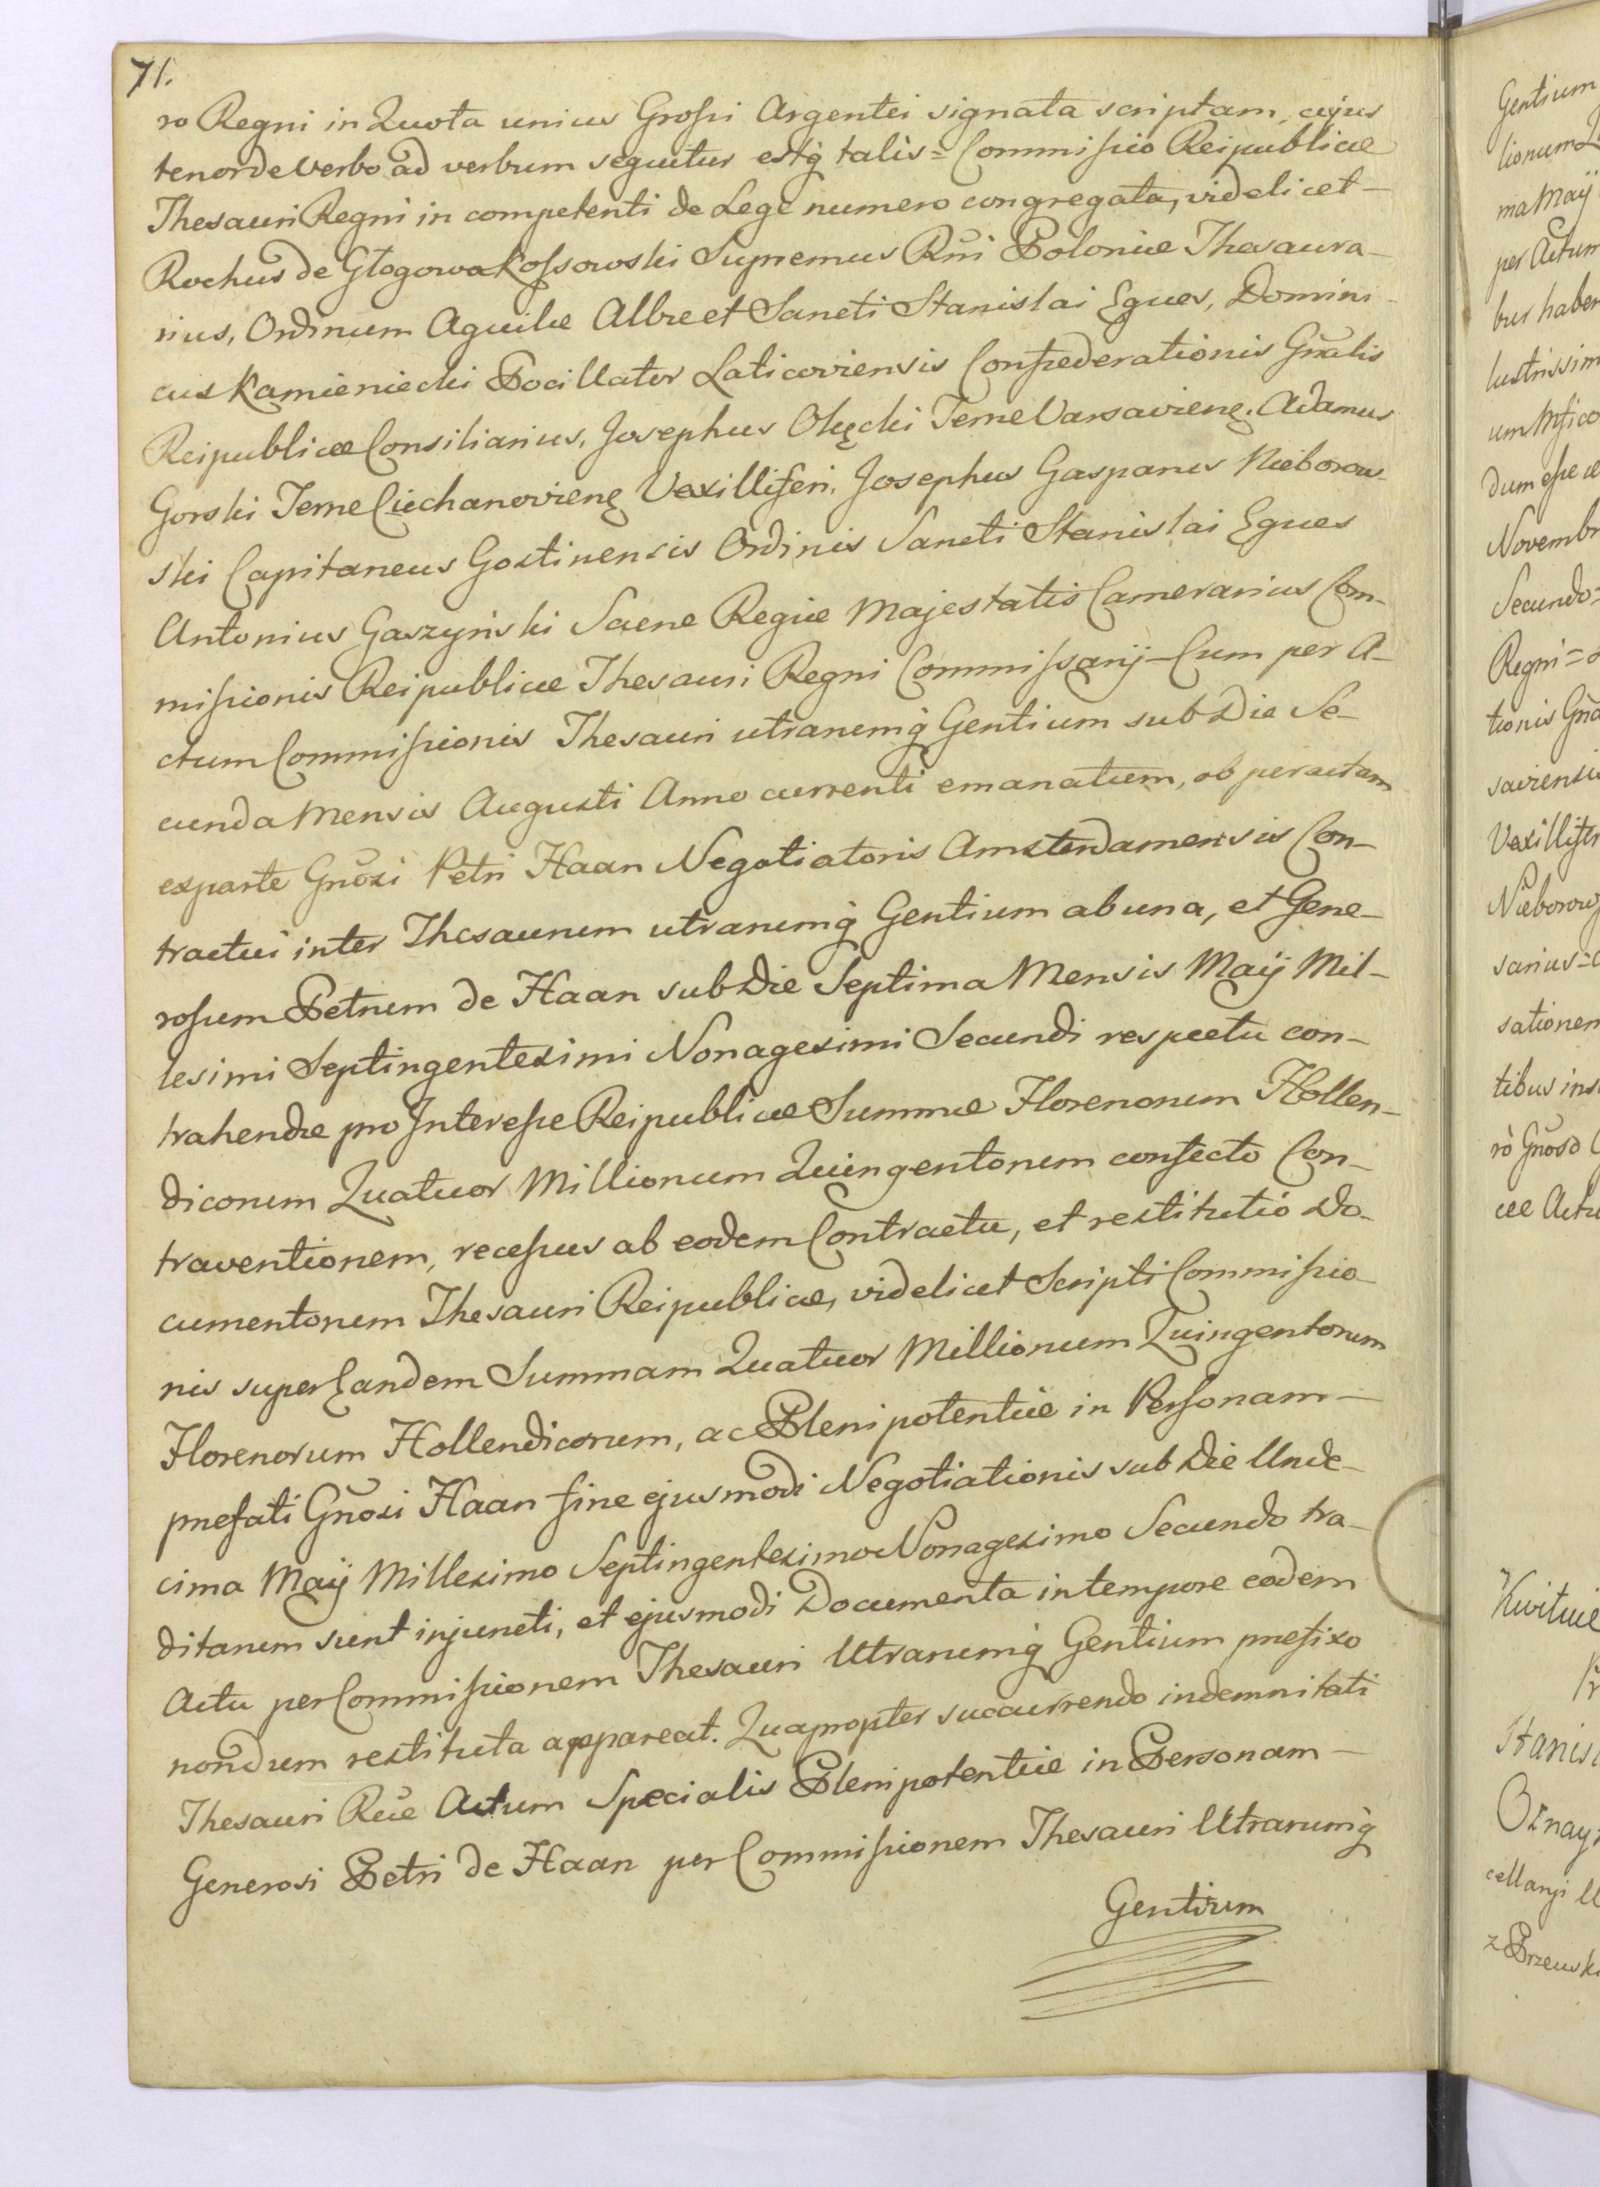 71.
ro Regni in Quota unius Grossi Argentei signata scriptam, cujus
tenor de verbo ad verbum sequitur estq́ talis = Commissio Reipublicæ
Thesauri Regni in competenti de Lege numero congregata, videlicet –
Rochus de Głogowa Kossowski Supremus Rńi Poloniæ Thesaura-
rius, Ordinum Aquilæ Albæ et Sancti Stanislai Eques, Domini-
cus Kamieniecki Pocillator Laticoviensis Confæderationis Gńalis
Reipublicæ Consiliarius, Josephus Olęcki Terræ Varsavieng. Adamus
Gorski Terræ Ciechanovieng Vexilliferi, Josephus Gasparus Nieborow-
ski Capitaneus Gostinensis Ordinis Sancti Stanislai Eques
Antonius Gaszyński Sacræ Regiæ Majestatis Camerarius Com-
missionis Reipublicæ Thesauri Regni Commissarij – Cum per A-
ctum Commissionis Thesauri utrarumq́ Gentium sub Die Se-
cunda Mensis Augusti Anno currenti emanatum, ob peractam
exparte Gńosi Petri Haan Negotiatoris Amsterdamensis Con-
tractui inter Thesaurum utrarumq́ Gentium ab una, et Gene-
rosum Petrum de Haan sub Die Septima Mensis Maij Mil-
lesimi Septingentesimi Nonagesimi Secundi respectu con-
trahendæ pro Interesse Reipublicæ Summæ Florenorum Hollen-
dicorum Quatuor Millionum Quingentorum confecto Con-
traventionem, recessus ab eodem Contractu, et restitutió Do-
cumentorum Thesauri Reipublicæ, videlicet Scripti Commissio-
nis super Eandem Summam Quatuor Millionum Quingentorum
Florenorum Hollendicorum, ac Plenipotentiæ in Personam –
præfati Gńosi Haan fine ejusmodi Negotiationis sub Die Unde-
cima Maij Millesimo Septingentesimo Nonagesimo Secundo tra-
ditarum sunt injuncti, et ejusmodi Documenta in tempore eodem
Actu per Commissionem Thesauri Utrarumq́ Gentium præfixo
nondum restituta appareat. Quapropter succurrendo indemnitati
Thesauri Rcæ Actum Specialis Plenipotentiæ in Personam –
Generosi Petri de Haan per Commissionem Thesauri Utrarumq́
Gentium
Gentium
lionum
ma Maij
per Actum
bus haben
lustrissim
um Mfico
dum esse
Novembr
Secundo =
Regni =
tionis Gńa
saviensis
Vexillifer
Nieborow
sarius =
sationem
tibus ins
rò Gńoso
cæ Actu
Kwituie
Stanis
cellaryi